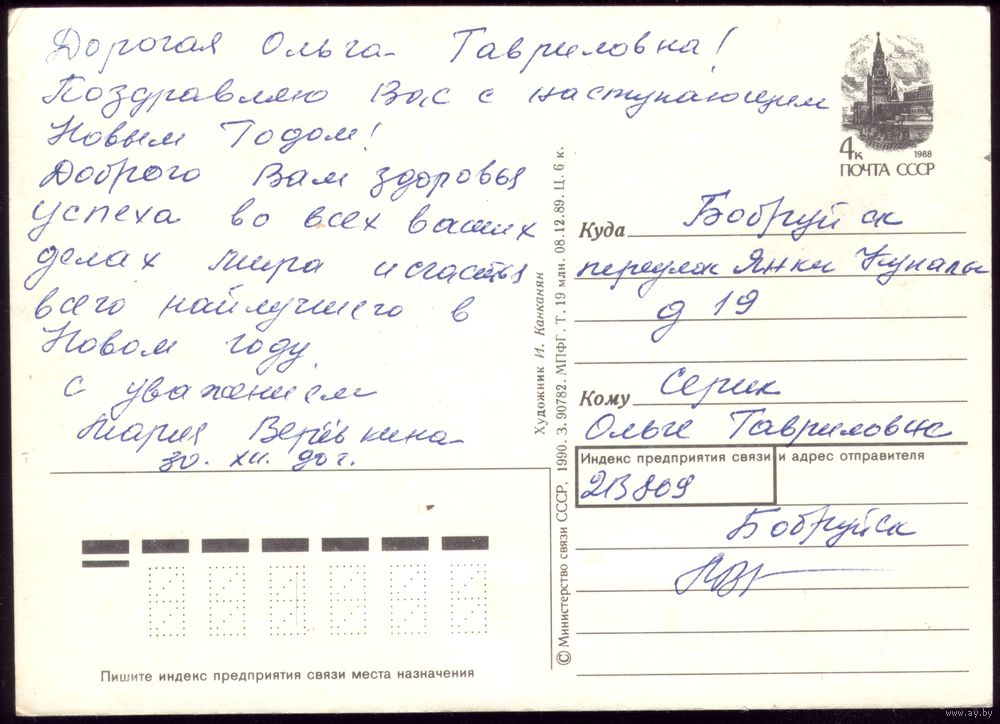 Дорогая Ольга Гавриловна!
Поздравляю Вас с наступающим
Новым Годом!
Доброго Вам здоровья
успеха во всех ваших
делах мира и счастья
всего найлучшего в
Новом году.
С уважением
Мария Верёвкина
30. XII. 90 г.
4к
1988
ПОЧТА СССР
Куда Бобруйск
переулок Янки Купалы
д 19
Кому Серик
Ольге Гавриловне
Индекс предприятия связи и адрес отправителя
213809
Бобруйск
Пишите индекс предприятия связи места назначения
Художник И. Канканян
© Министерство связи СССР, 1990. З. 90782. МПФГ. Т. 19 млн. 08.12.89. Ц. 6 к.
www.ay.by